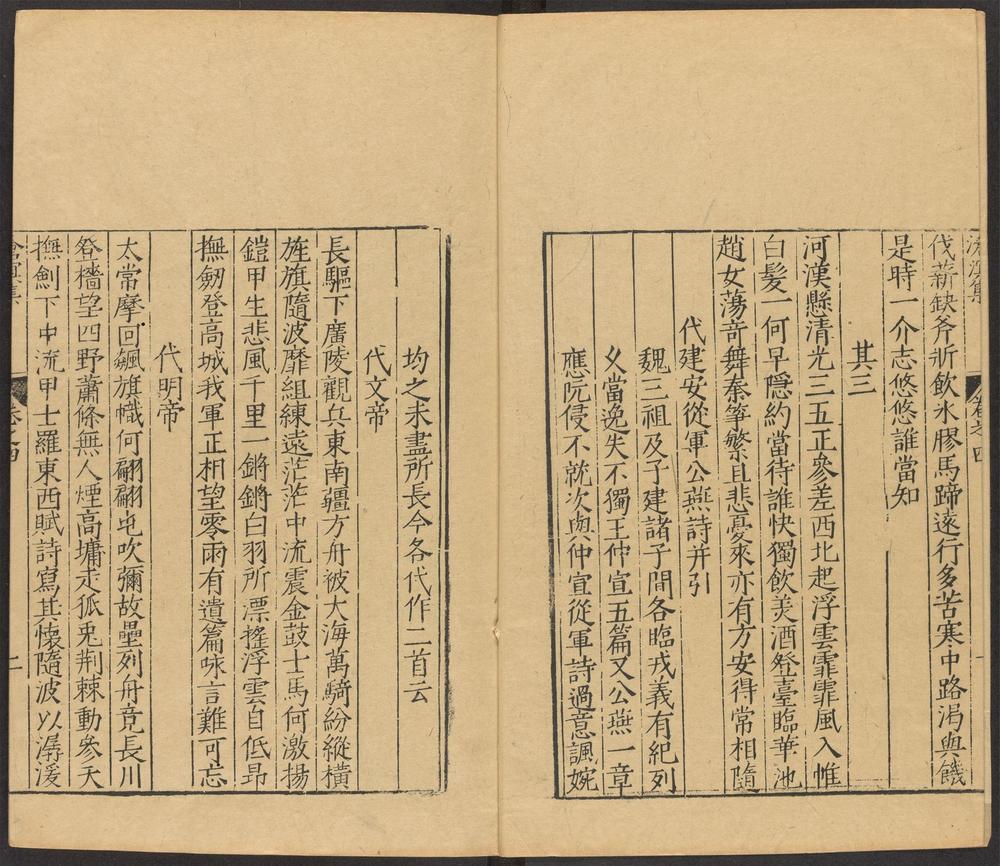 滄溟集
卷之四
一
伐薪缺斧斨飲水膠馬蹄遠行多苦寒中路渴與饑
是時一介志悠悠誰當知
其三
河漢懸清光三五正參差西北起浮雲霏霏風入帷
白髮一何早隱約當待誰快獨飲美酒登臺臨華池
趙女蕩奇舞秦筝繁且悲憂來亦有方安得常相隨
代建安從軍公燕詩并引
魏三祖及子建諸子間各臨戎義有紀列
父當逸失不獨王仲宣五篇又公燕一章
應阮侵不就次與仲宣從軍詩過意諷婉
均之未盡所長今各代作二首云
代文帝
長驅下廣陵觀兵東南疆方舟被大海萬騎紛縱橫
旌旗隨波靡組練遠茫茫中流震金鼓士馬何激揚
鎧甲生悲風千里一鏘鏘白羽所漂搖浮雲自低昂
撫劒登高城我軍正相望零雨有遺篇咏言難可忘
代明帝
太常摩回飊旗幟何翩翩屯吹彌故壘列舟竟長川
登檣望四野蕭條無人煙高墉走狐兎荆棘動參天
撫劍下中流甲士羅東西賦詩寫其懷隨波以潺湲
滄溟集
卷之四
二